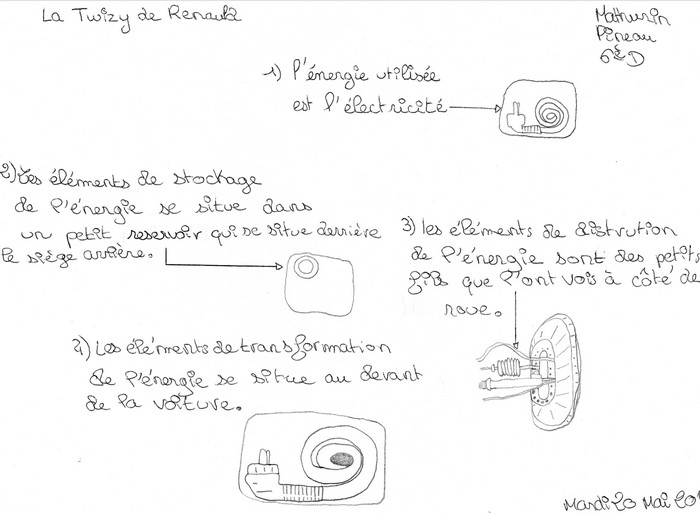 La Twizy de Renault
Mathurin
Pineau
6è D
1) l'énergie utilisée
est l'électricité
2) Les éléments de stockage
de l'énergie se situe dans
un petit reservoir qui se situe derrière
le siège arrière.
3) les éléments de distrution
de l'énergie sont des petits
fils que l'ont vois à côté de
roue.
4) Les éléments de transformation
de l'énergie se situe au devant
de la voiture.
Mardi 20 Mai